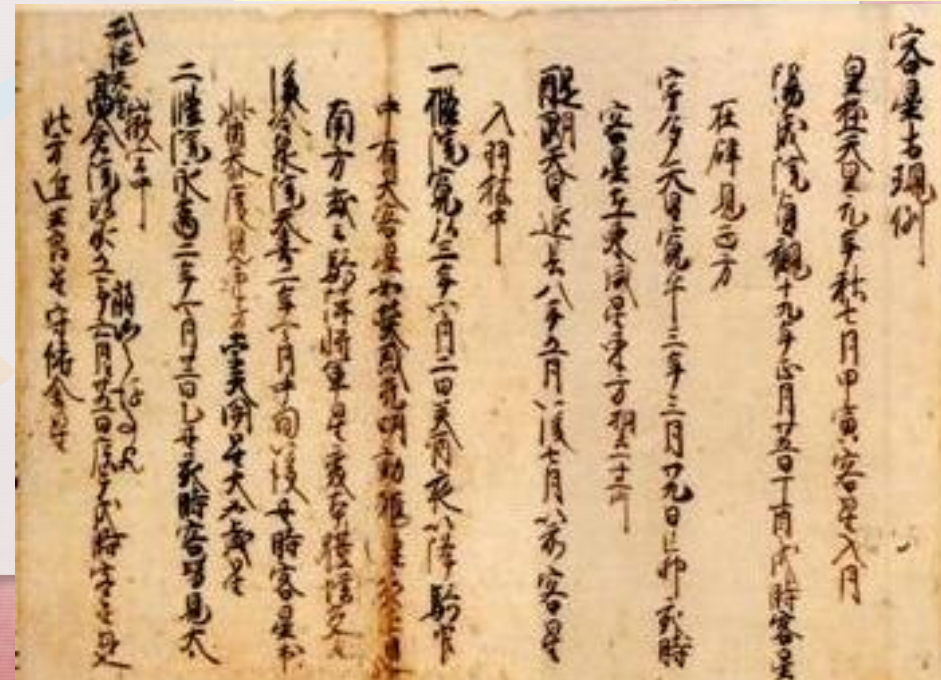 客星古現例
皇極天皇元年秋七月甲寅客星入月
陽成院貞観十九年正月廿五日丁酉戌時客星
在辟見西方
宇多天皇寛平三年三月廿九日己卯亥時
客星在東咸星東方相去一寸所
醍醐天皇延長八年五月以後七月以前客星
入羽林中
一條院寛弘三年四月二日癸酉夜以降騎官
中有大客星如熒惑光明動耀連夜正見
南方或云騎陣将軍星変本体増光
後冷泉院天喜二年四月中旬以後丑時客星出
觜参度見東方孛天関星大如歳星
二條院永万二年四月廿二日乙丑亥時客星見大
微宮中
高倉院治承五年六月廿五日庚午戌時客星見
北方近王良星守傳舎星